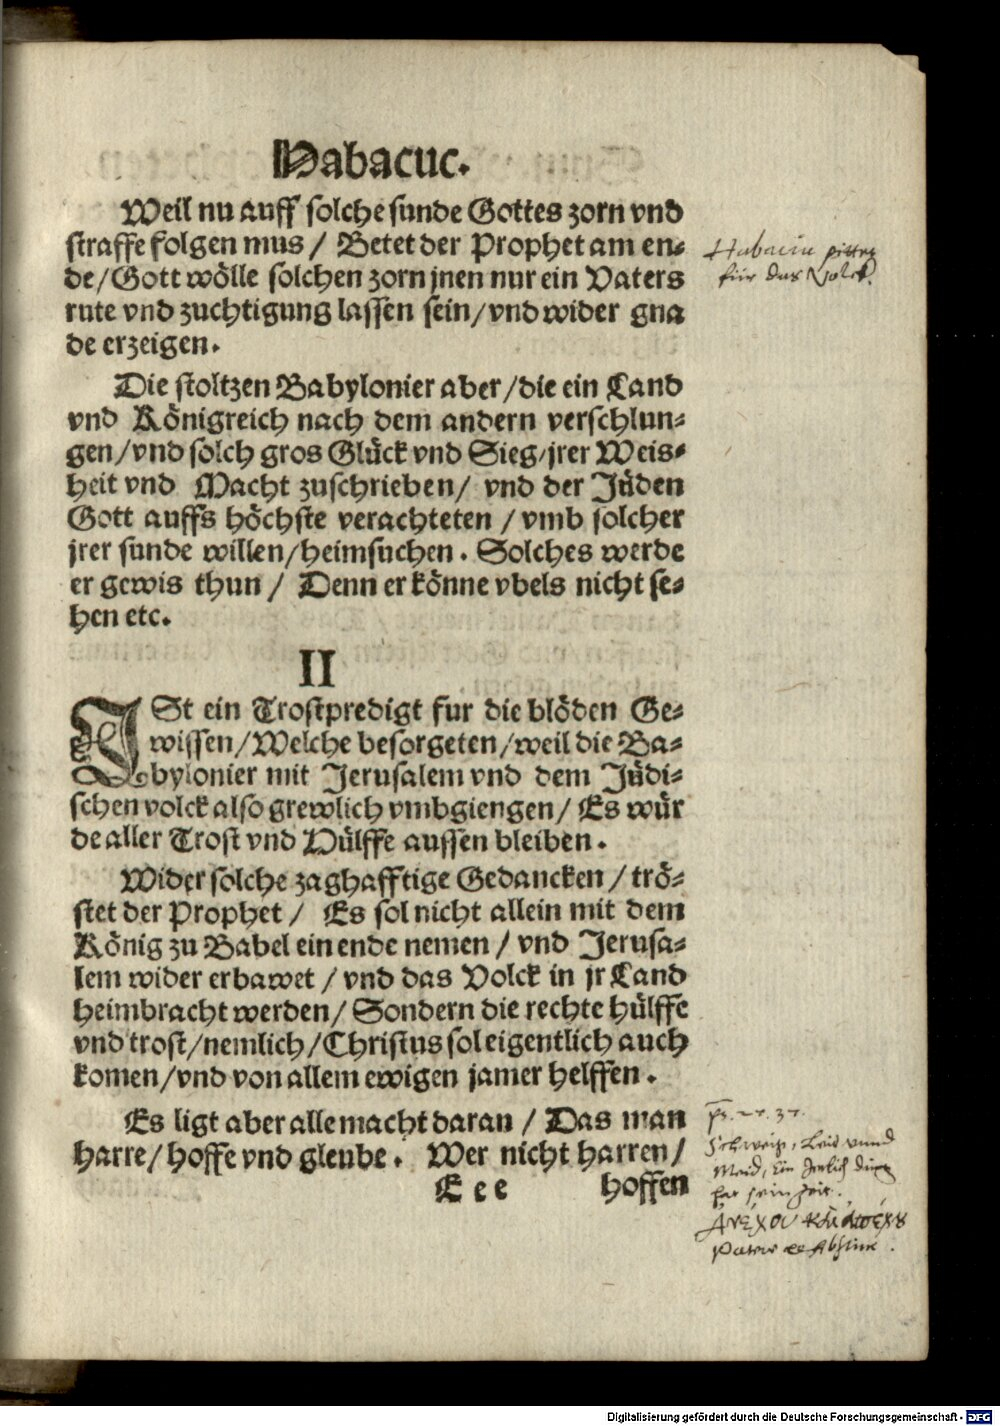 Habacuc.
Weil nu auff solche sunde Gottes zorn vnd
straffe folgen mus / Betet der Prophet am en⸗
de / Gott wölle solchen zorn jnen nur ein Vaters
rute vnd zuchtigung lassen sein / vnd wider gna
de erzeigen.
Die stoltzen Babylonier aber / die ein Land
vnd Königreich nach dem andern verschlun⸗
gen / vnd solch gros Glück vnd Sieg / jrer Weis⸗
heit vnd Macht zuschrieben / vnd der Jüden
Gott auffs höchste verachteten / vmb solcher
jrer sunde willen / heimsuchen. Solches werde
er gewis thun / Denn er könne vbels nicht se⸗
hen etc.
II
JSt ein Trostpredigt fur die blöden Ge⸗
wissen / Welche besorgeten / weil die Ba⸗
bylonier mit Jerusalem vnd dem Jüdi⸗
schen volck also grewlich vmbgiengen / Es wür
de aller Trost vnd Hülffe aussen bleiben.
Wider solche zaghafftige Gedancken / trö⸗
stet der Prophet / Es sol nicht allein mit dem
König zu Babel ein ende nemen / vnd Jerusa⸗
lem wider erbawet / vnd das Volck in jr Land
heimbracht werden / Sondern die rechte hülffe
vnd trost / nemlich / Christus sol eigentlich auch
komen / vnd von allem ewigen jamer helffen.
Es ligt aber alle macht daran / Das man
harre / hoffe vnd gleube. Wer nicht harren /
E e e hoffen
Habacuc bittet
für das Volck.
Schweig, Leid vnnd
Meid, Ein Jeglich ding
hat sein Zeit.
Digitalisierung gefördert durch die Deutsche Forschungsgemeinschaft - DFG